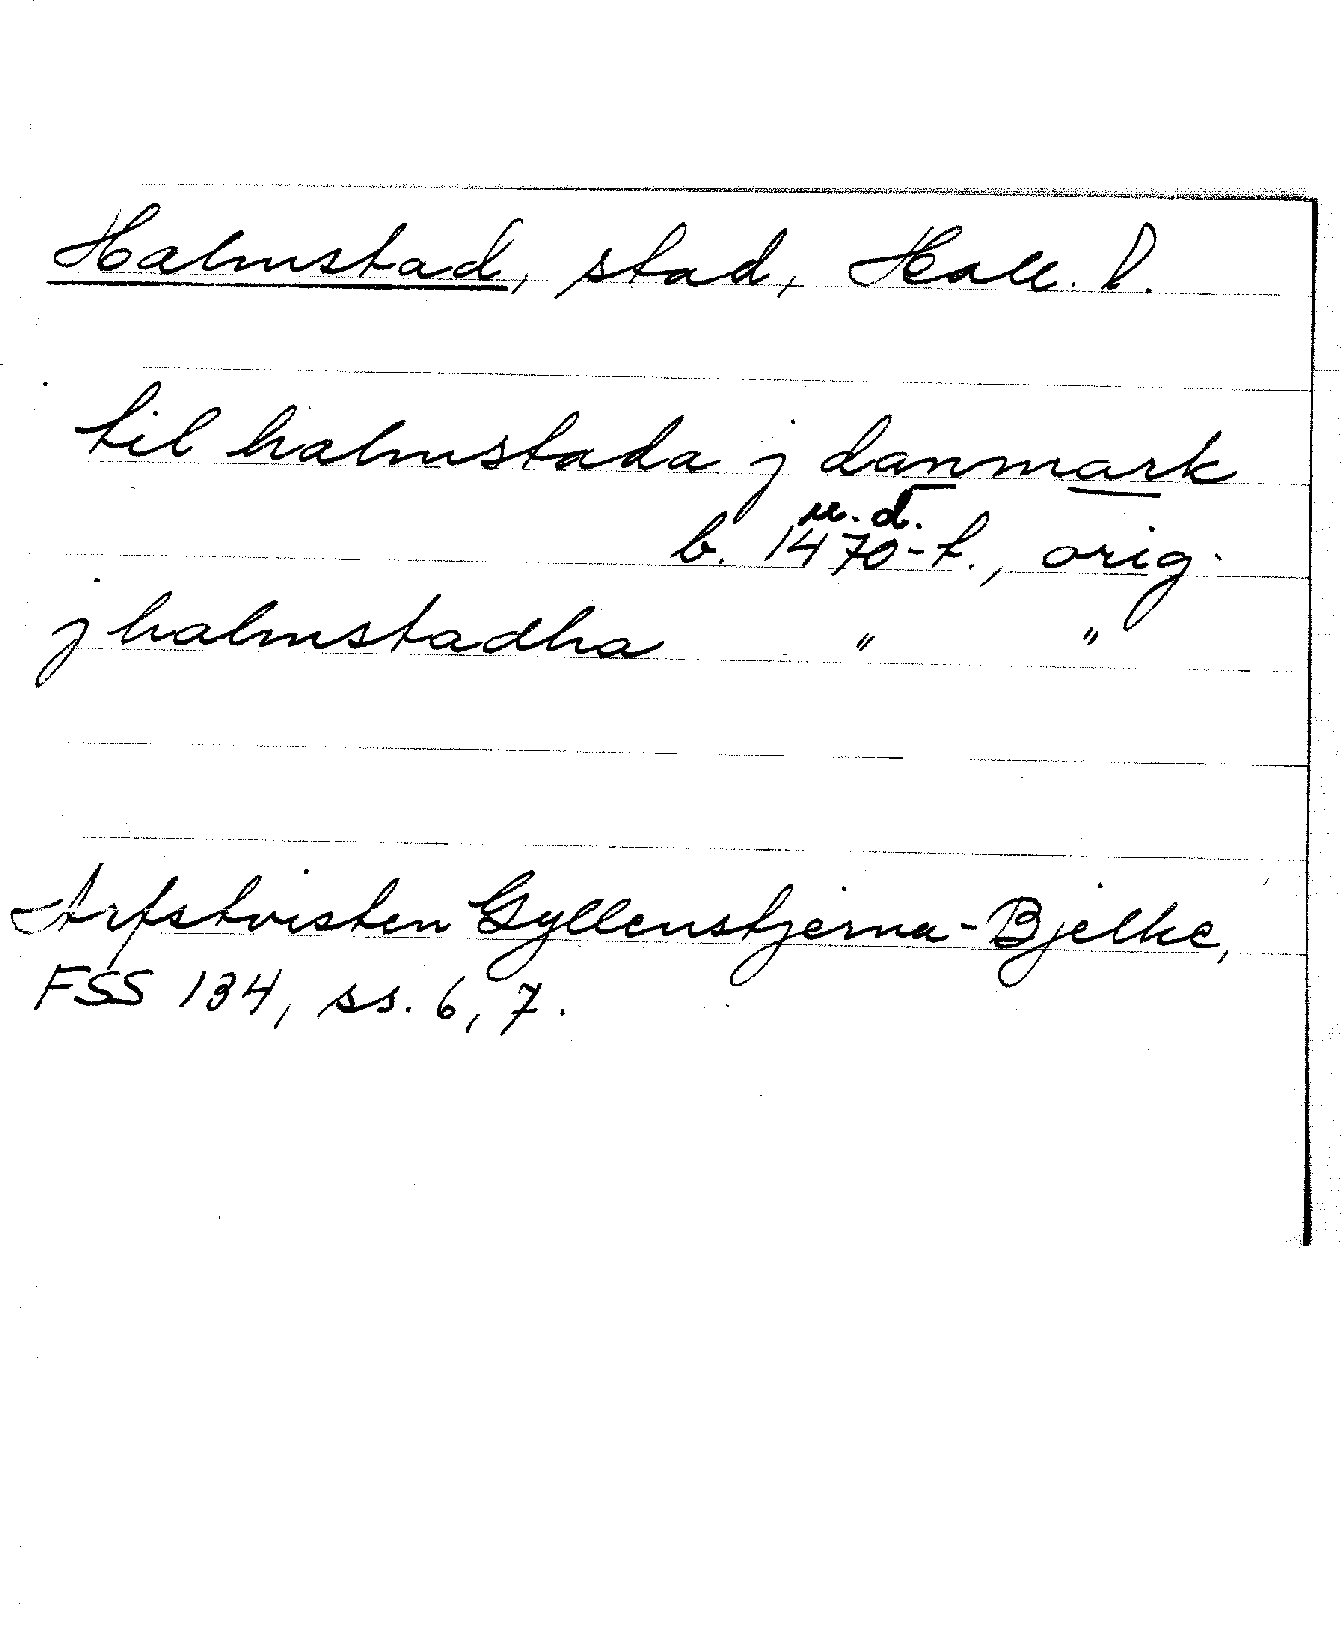 Halmstad, stad, Hall. l.
til halmstada j danmark
u. d.
b. 1470-t., orig.
j halmstadha " "
Arfstvisten Gyllenstjerna-Bjelke,
FSS 134, ss. 6, 7.